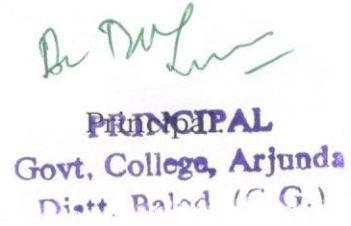 Principal
PRINCIPAL
Govt, College, Arjunda
Distt. Balod (C.G.)